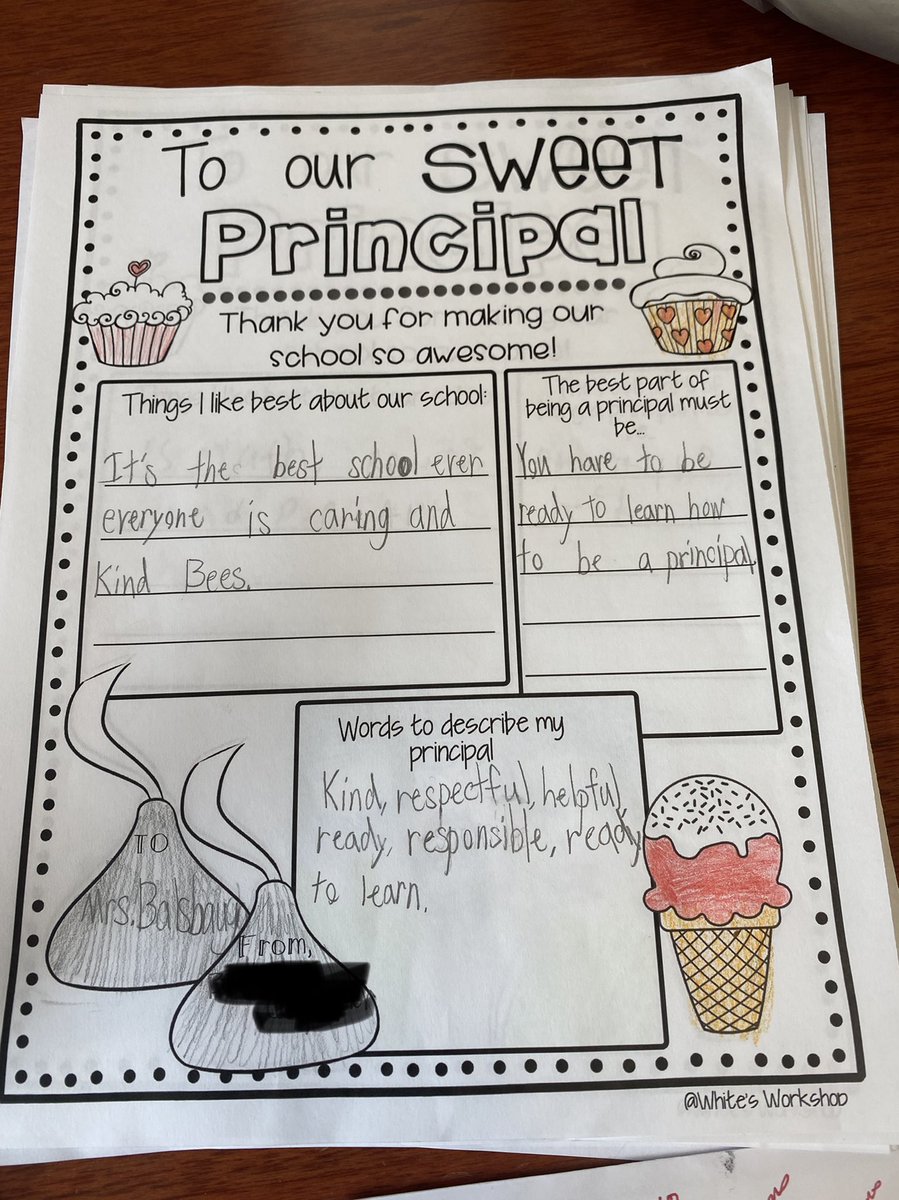 To our SWEET
Principal
Thank you for making our
school so awesome!
Things I like best about our school:
It's the best school ever
everyone is caring and
Kind Bees.
The best part of
being a principal must
be...
You have to be
ready to learn how
to be a principal.
Words to describe my
principal
Kind, respectful, helpful,
ready, responsible, ready
to learn.
TO
Mrs.
From,
@White's Workshop